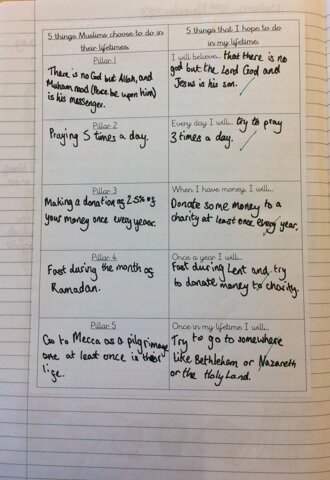 5 things Muslims choose to do in
their lifetimes
5 things that I hope to do
in my lifetime
Pillar 1
There is no God but Allah, and
Muhammad (Peace be upon him)
is his messenger.
I will believe... that there is no
god but the Lord God and
Jesus is his son.
Pillar 2
Praying 5 times a day.
Every day I will... try to pray
3 times a day.
Pillar 3
Making a donation of 2.5% of
your money once every year.
When I have money, I will...
Donate some money to a
charity at least once every year.
Pillar 4
Fast during the month of
Ramadan.
Once a year I will...
Fast during Lent and try
to donate money to charity.
Pillar 5
Go to Mecca as a pilgrimage
one at least once in their
life.
Once in my lifetime I will...
Try to go to somewhere
like Bethlehem or Nazareth
or the Holy Land.